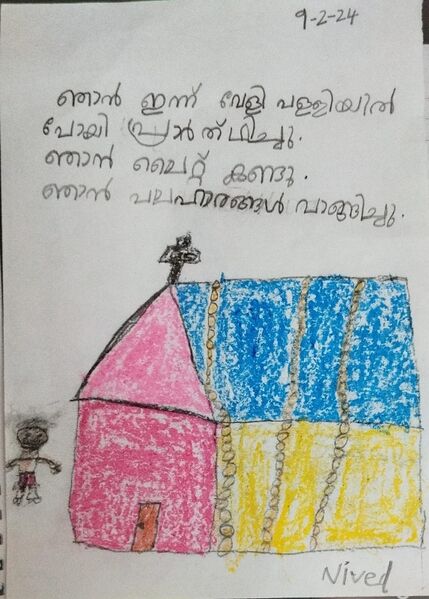 9-2-24
ഞാൻ ഇന്ന് വേളി പള്ളിയിൽ
പോയി പ്രാൻത്ഥിച്ചു.
ഞാൻ ലൈറ്റ് കണ്ടു.
ഞാൻ പലഹാരങ്ങൾ വാങ്ങിച്ചു.
Nived